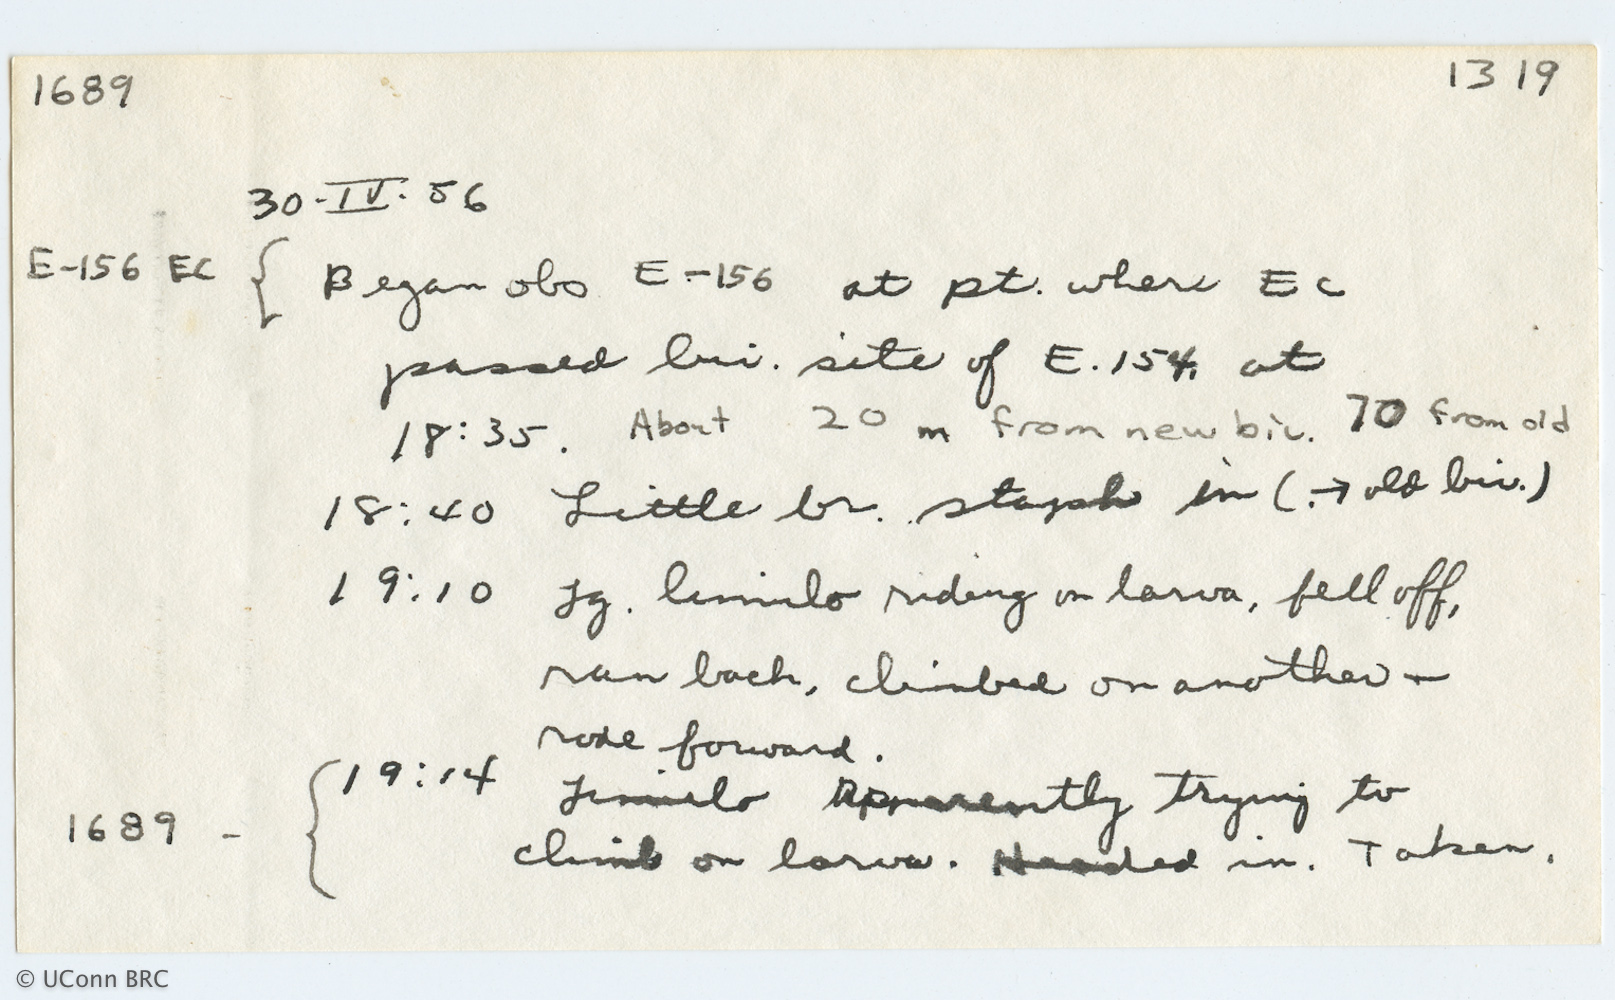 1689 1319
30-IV-56
E-156 Ec { Began obs E-156 at pt. where Ec
passed biv. site of E.154, at
18:35. About 20 m from new biv. 70 from old
18:40 Little br. staph in (→ old biv.)
19:10 Lg. limulo riding on larva, fell off,
ran back, climbed on another -
rode forward.
19:14 Limulo Apparently trying to
1689 - { climb on larva. Headed in. Taken.
© UConn BRC